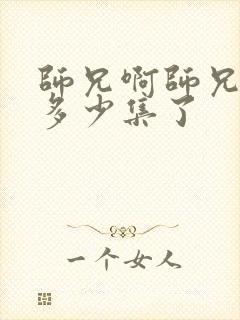 師兄啊師兄
多少集了
一个女人